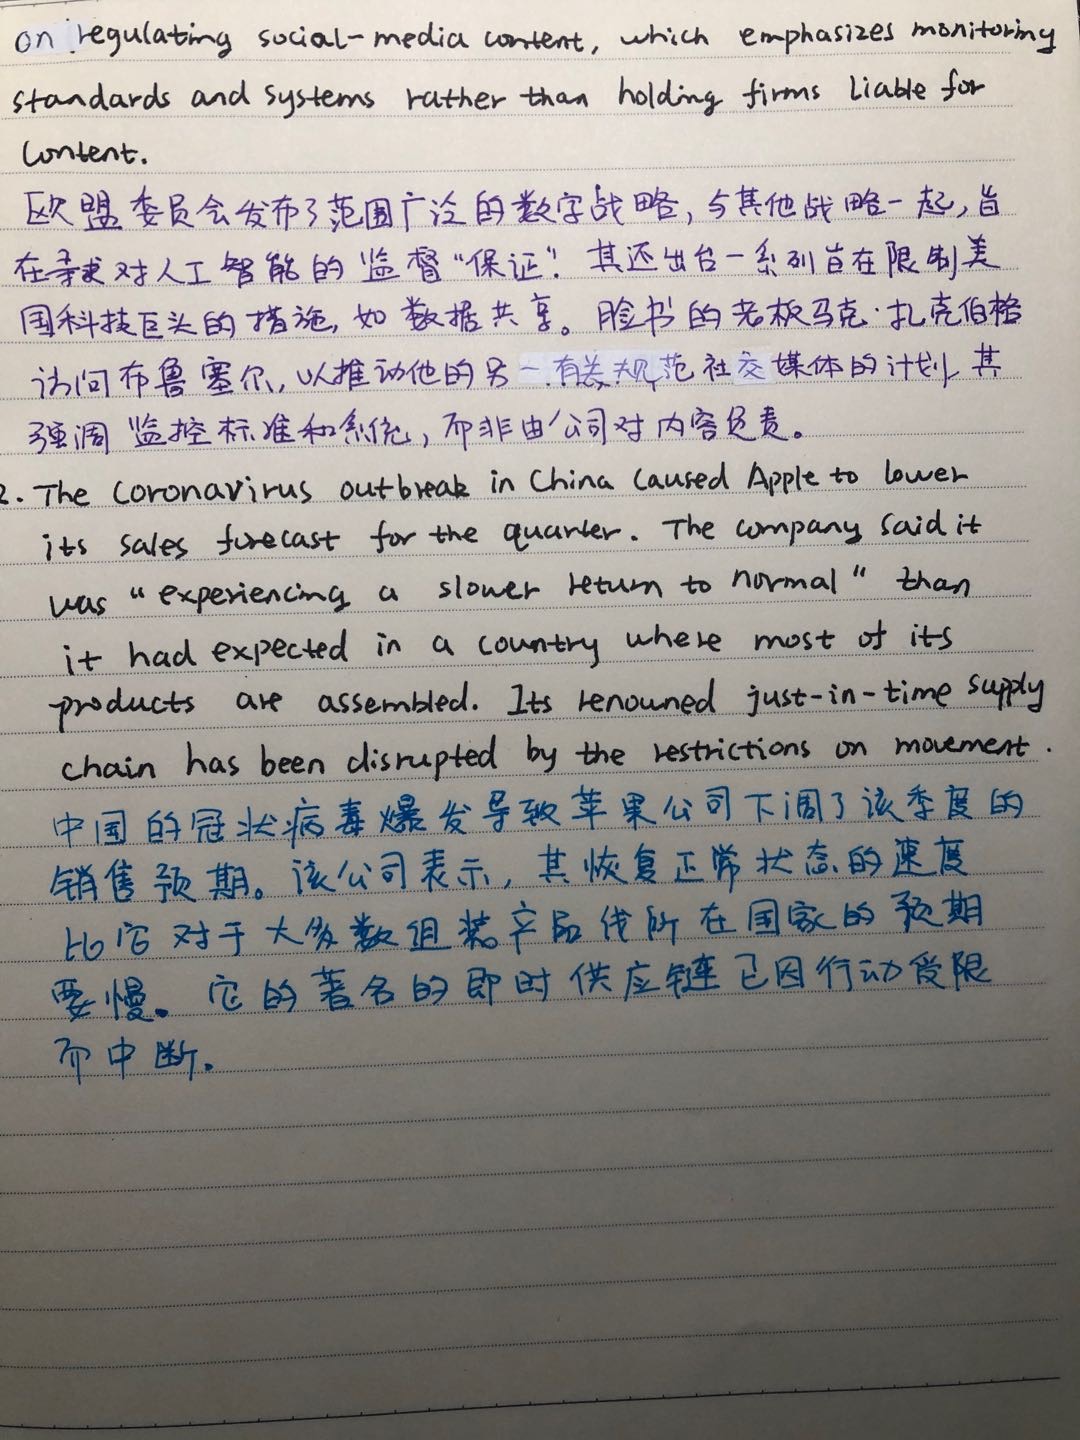 on regulating social-media content, which emphasizes monitoring
standards and systems rather than holding firms liable for
content.
欧盟委员会发布了范围广泛的数字战略，与其他战略一起，旨
在寻求对人工智能的监督“保证”。其还出台一系列旨在限制美
国科技巨头的措施，如数据共享。脸书的老板马克·扎克伯格
访问布鲁塞尔，以推动他的另一有关规范社交媒体的计划，其
强调监控标准和系统，而非由公司对内容负责。
2. The coronavirus outbreak in China caused Apple to lower
its sales forecast for the quarter. The company said it
was “experiencing a slower return to normal” than
it had expected in a country where most of its
products are assembled. Its renouned just-in-time supply
chain has been disrupted by the restrictions on movement.
中国的冠状病毒爆发导致苹果公司下调了该季度的
销售预期。该公司表示，其恢复正常状态的速度
比它对于大多数组装产品线所在国家的预期
要慢。它的著名的即时供应链已因行动受限
而中断。